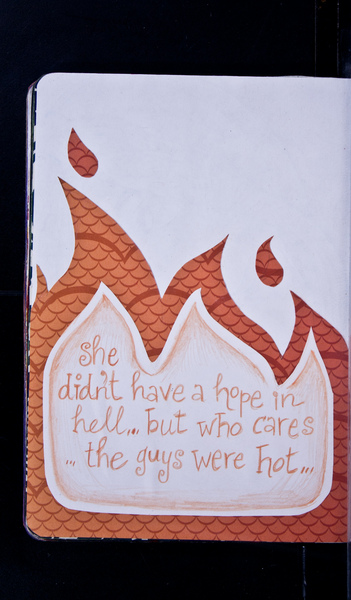 she
didn't have a hope in
hell... but who cares
... the guys were hot...